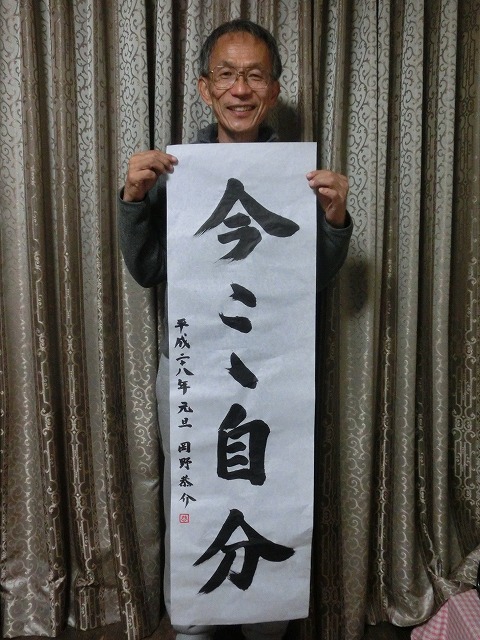 今ここ自分
平成二八年 元旦 岡野恭介